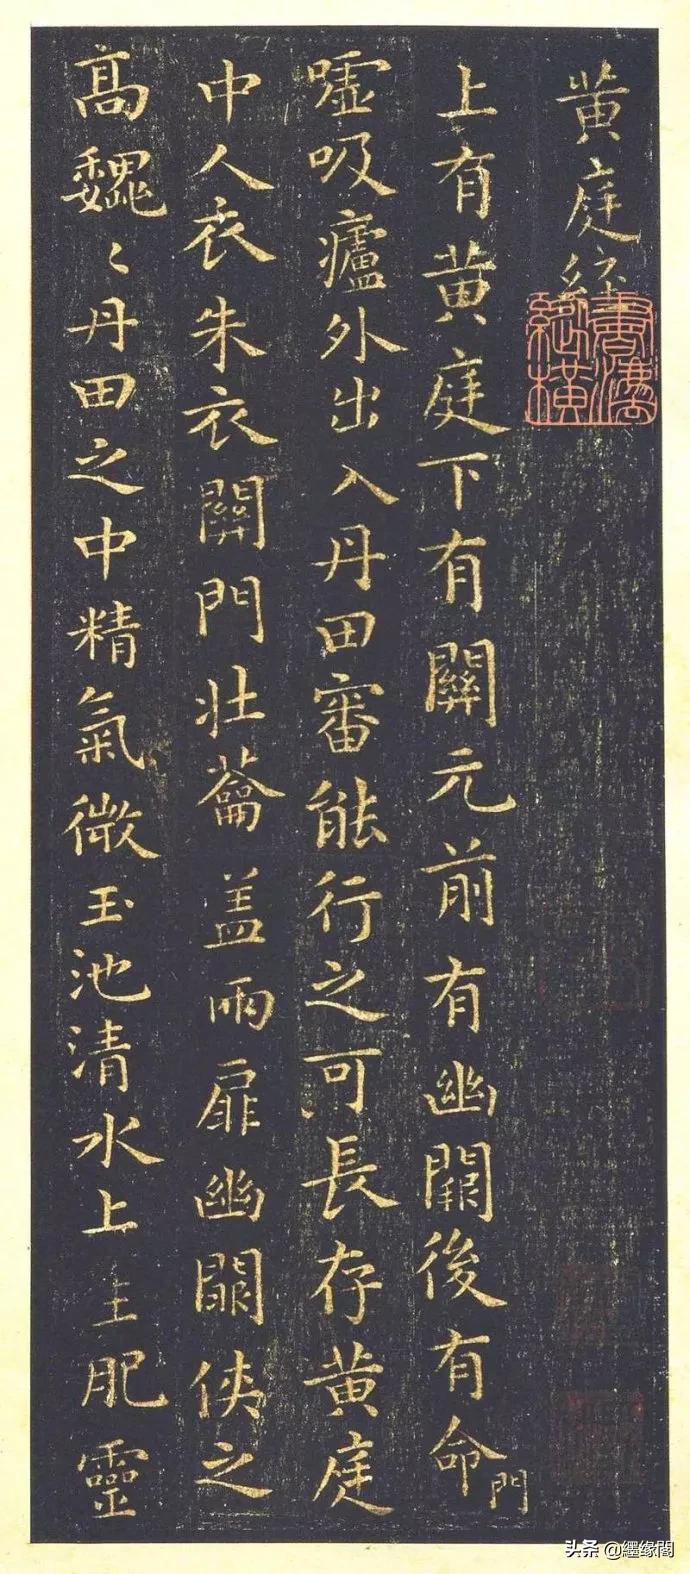 黄庭經
上有黄庭下有關元前有幽闕後有命門
嘘吸廬外出入丹田審能行之可長存黄庭
中人衣朱衣關門壯蘥盖兩扉幽闕俠之
高巍〻丹田之中精氣微玉池清水上生肥靈
頭条 @缘閣